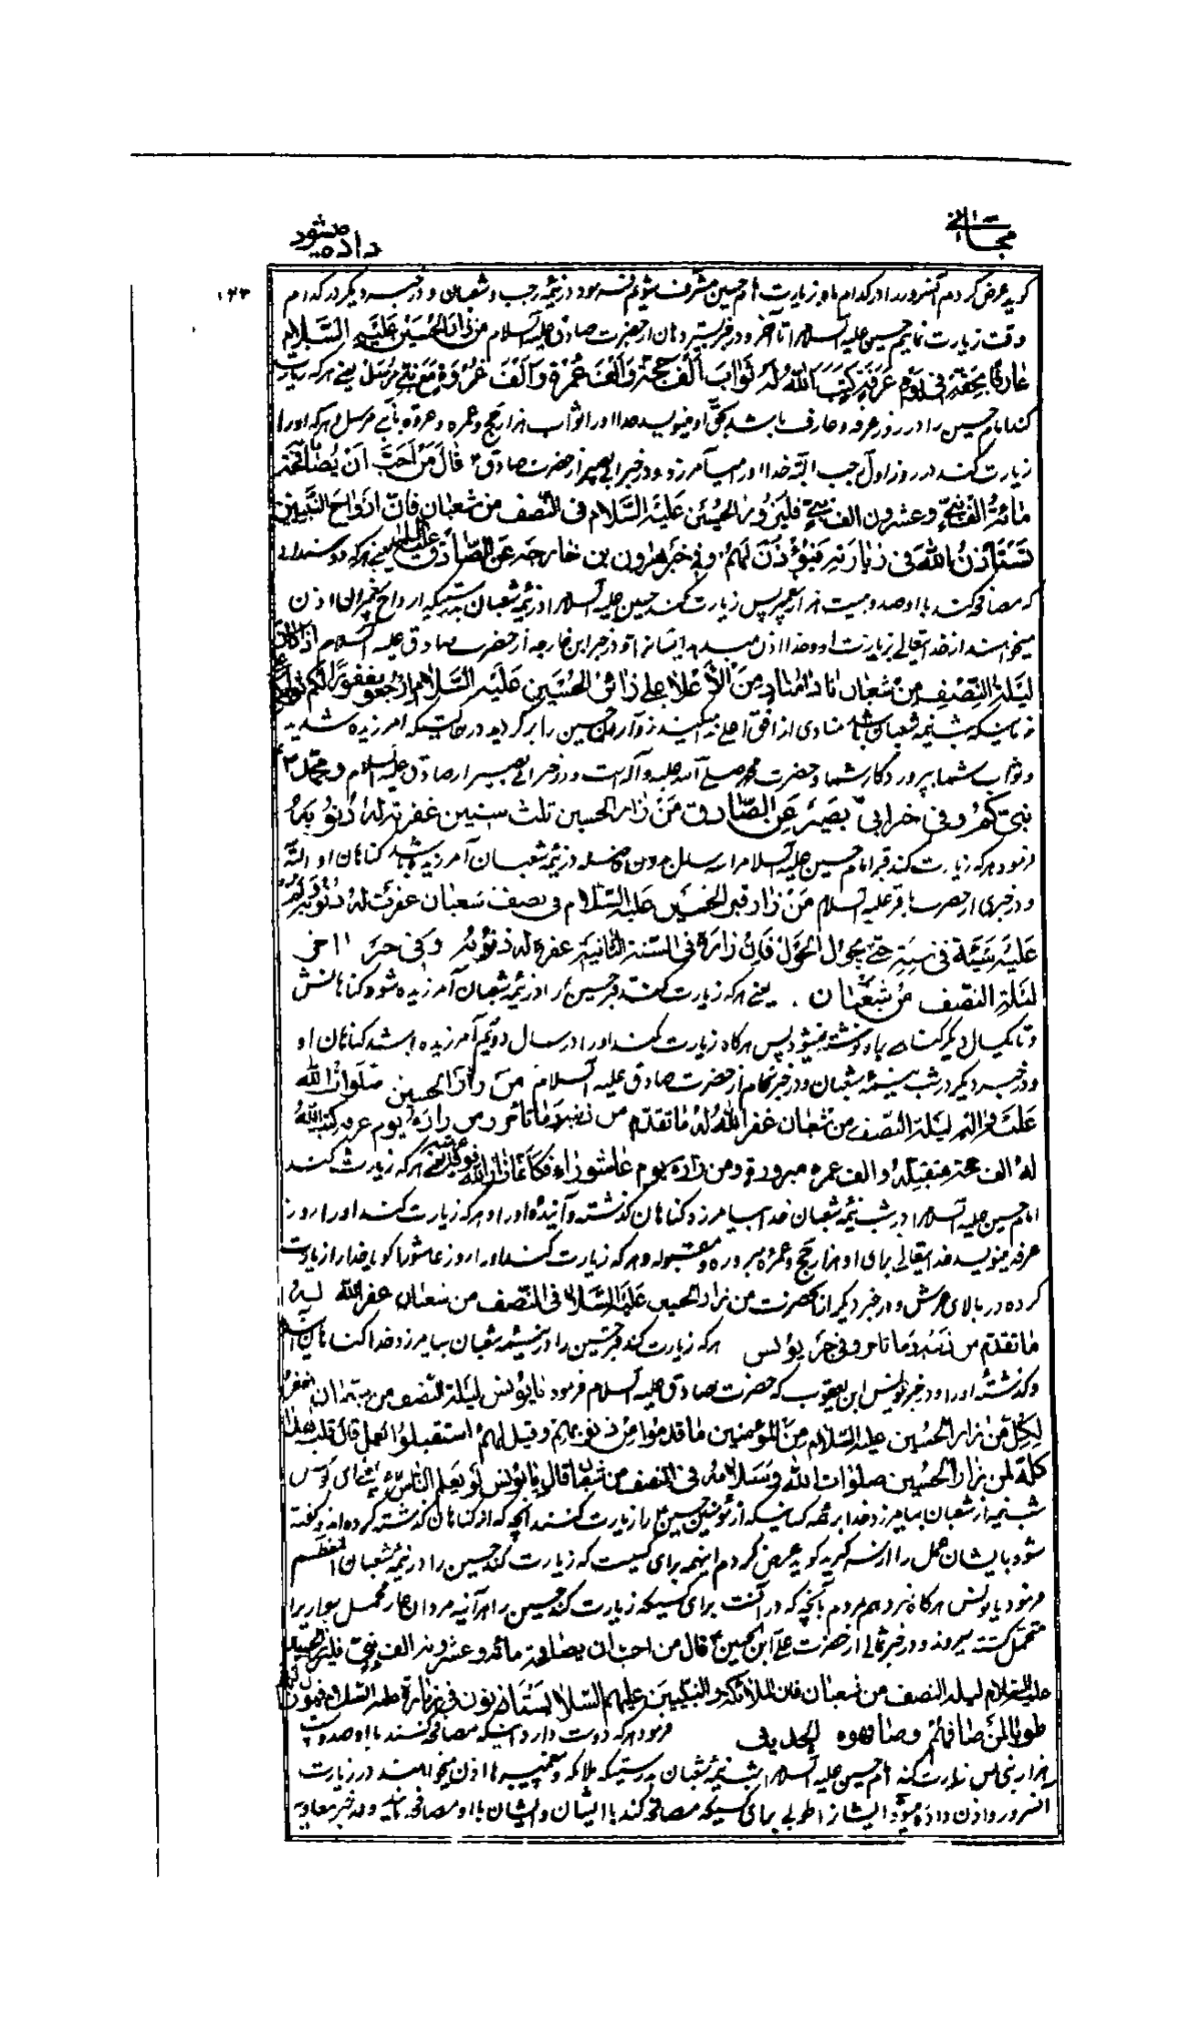 مجالس
داده میشود
۱۴۳
گوید عرض کردم آنسرور را در کدام ماه زیارت امام حسین مشرف شویم فرمود در نیمه رجب و شعبان و در خبر دیگر در کدام
وقت زیارت نمایم حسین علیه السلام را تا آخر و در خبر از حضرت صادق علیه السلام من زار الحسین علیه السلام
عارفا بحقه فی یوم عرفة کتب الله له ثواب الف حجة و الف عمرة و الف غزوة مع نبی مرسل یعنی هر که زیارت
کند امام حسین را در روز عرفه و عارف باشد بحق او مینویسد خدا او را ثواب هزار حج و عمره و غزوه با نبی مرسل هر که او را
زیارت کند در روز اول رجب البته خدا او را میآمرزد و در خبر ابی بصیر از حضرت صادق قال من احب ان یصافحه
مائة الف نبی و عشرون الف نبی فلیزور الحسین علیه السلام فی النصف من شعبان فان ارواح النبیین
تستأذن الله فی زیارته فیؤذن لهم و فی خبر هرون بن خارجه عن الصادق علیه السلام یعنی هر که دوست دارد
که مصافحه کند با او صد و بیست هزار پیغمبر پس زیارت کند حسین علیه السلام را در نیمه شعبان بدرستیکه ارواح پیغمبران اذن
میخواهند از خدایتعالی بزیارت او و خدا اذن میدهد ایشانرا و در خبر ابن خارجه از حضرت صادق علیه السلام اذا کان
لیلة النصف من شعبان نادا مناد من الافق الاعلا علی زائری الحسین علیه السلام ارجعو مغفورا لکم
زمانیکه شب نیمه شعبان باشد منادی از افق اعلی ندا میکند زوار حسین را برگردید در حالتیکه آمرزیده شدید
و ثواب شما بپروردگار شما و حضرت محمد صلی الله علیه و آله است و در خبر ابی بصیر از صادق علیه السلام و محمد
نبیکم و فی خبر ابی بصیر عن الصادق من زار الحسین ثلث سنین غفر له ذنوبه
فرمود هر که زیارت کند قبر امام حسین علیه السلام را سه سال بدون فاصله در نیمه شعبان آمرزیده باشد گناهان او البته
و در خبری از حضرت باقر علیه السلام من زار قبر الحسین علیه السلام فی نصف شعبان غفرت له ذنوبه
علیه سیئة فی سنته حتی یحول الحول فان زاره فی السنة الثانیة غفر له ذنوبه و فی خبر اخر
لیلة النصف من شعبان یعنی هر که زیارت کند قبر حسین را در نیمه شعبان آمرزیده شود گناهانش
و تا یکسال دیگر گناهی بر او نوشته نمیشود پس هر گاه زیارت کند او را در سال دویم آمرزیده باشد گناهان او
و در خبر دیگر در شب نیمه شعبان و در خبر از حضرت صادق علیه السلام من زار الحسین صلوات الله
علیه لیلة النصف من شعبان غفر الله له ما تقدم من ذنبه و ما تاخر و من زاره یوم عرفه کتب الله
له الف حجة متقبلة و الف عمرة مبرورة و من زاره یوم عاشوراء فکانما زار الله فوق عرشه یعنی هر که زیارت کند
امام حسین علیه السلام را در شب نیمه شعبان خدا بیامرزد گناهان گذشته و آینده او را و هر که زیارت کند او را روز
عرفه مینویسد خدایتعالی برای او هزار حج و عمره مبروره و مقبوله و هر که زیارت کند او را روز عاشورا گویا خدا را زیارت
کرده در بالای عرش و در خبر دیگر از آنحضرت من زار الحسین علیه السلام فی النصف من شعبان غفر الله له
ما تقدم من ذنبه و ما تاخر و فی خبر یونس هر که زیارت کند قبر حسین را در نیمه شعبان بیامرزد خدا گناهان
و گذشته او را و در خبر یونس ابن یعقوب که حضرت صادق علیه السلام فرمود یا یونس لیلة النصف من شعبان یغفر الله
لکل من زار الحسین علیه السلام من المؤمنین ما قدموا من ذنوبهم و قیل لهم استقبلوا العمل قال قلت هذا
کله لمن زار الحسین صلوات الله و سلامه فی النصف من شعبان قال یا یونس لو یعلم الناس ای یونس
شب نیمه از شعبان بیامرزد خدا بر همه کسانیکه از مؤمنین حسین را زیارت کنند آنچه که از گناهان گذشته کرده‌اند و گفته
شود بایشان عمل را از سر گیرید گوید عرض کردم اینهمه برای کسیست که زیارت کند حسین را در نیمه شعبان المعظم
فرمود یا یونس هر گاه خبر دهم مردم بآنچه که در آنست برای کسیکه زیارت کند حسین را هر آینه مردان
میروند و در خبر ثمالی از حضرت علی ابن الحسین قال من احب ان یصافحه مائة و عشرون الف نبی فلیزر الحسین
علیه السلام لیلة النصف من شعبان فان الملائکة و النبیین علیهم السلام یستاذنون فی زیارته علیه السلام
طوبا لمن صافحهم و صافحوه الحدیث فرمود هر که دوست دارد اینکه مصافحه کنند با او صد و بیست
هزار نبی پس زیارت کند امام حسین علیه السلام را شب نیمه شعبان بدرستیکه ملائکه و پیغمبرها اذن میخواهند در زیارت
آنسرور و اذن داده میشود ایشانرا طوبی برای کسیکه مصافحه کند با ایشان و ایشان با او مصافحه نمایند و در خبر معاویه